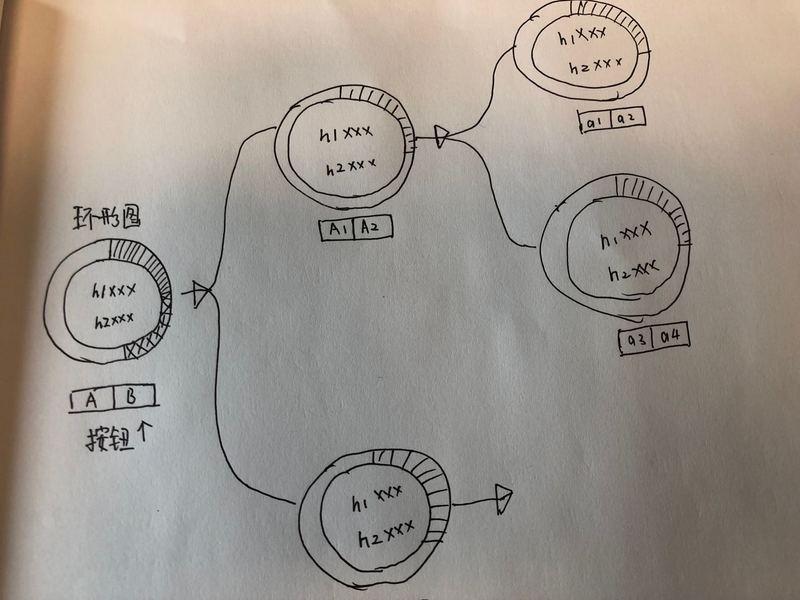 环形图
h1xxx
h2xxx
A B
按钮↑
h1xxx
h2xxx
A1 A2
h1xxx
h2xxx
a1 a2
h1xxx
h2xxx
a3 a4
h1xxx
h2xxx